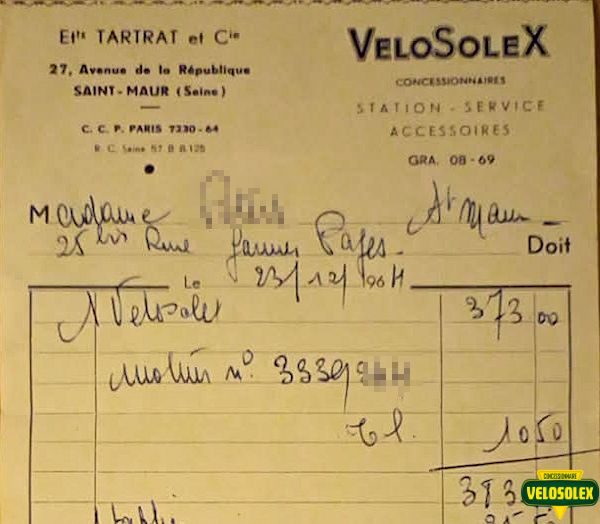 Etts TARTRAT et Cie
27, Avenue de la République
SAINT-MAUR (Seine)
C. C. P. PARIS 7330-64
R. C. Seine 57 B B.125
VELOSOLEX
CONCESSIONNAIRES
STATION - SERVICE
ACCESSOIRES
GRA. 08-69
Madame St Maur
25 bis Rue Garnier Pagès
Doit
Le 23/12/1964
1 Velosolex 373 00
n° 3339
10 50
383
CONCESSIONNAIRE
VELOSOLEX